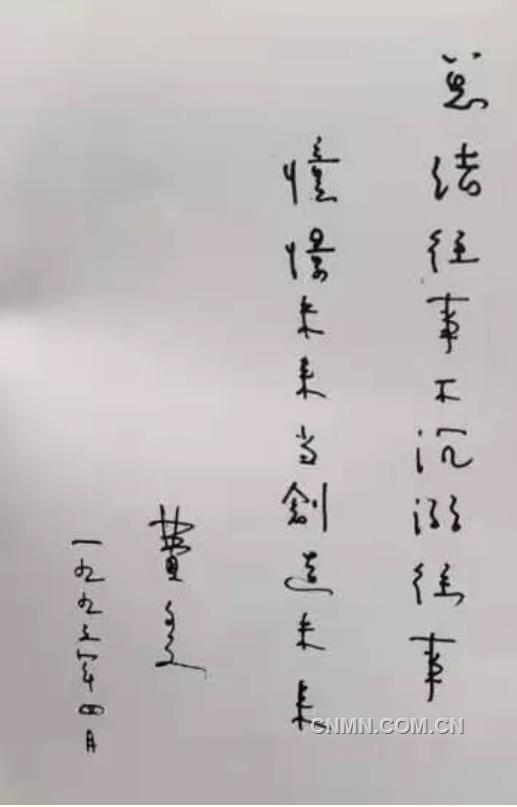 总结往事不沉溺往事
憧憬未来当创造未来
费
一九九三年四月
CNMN.COM.CN